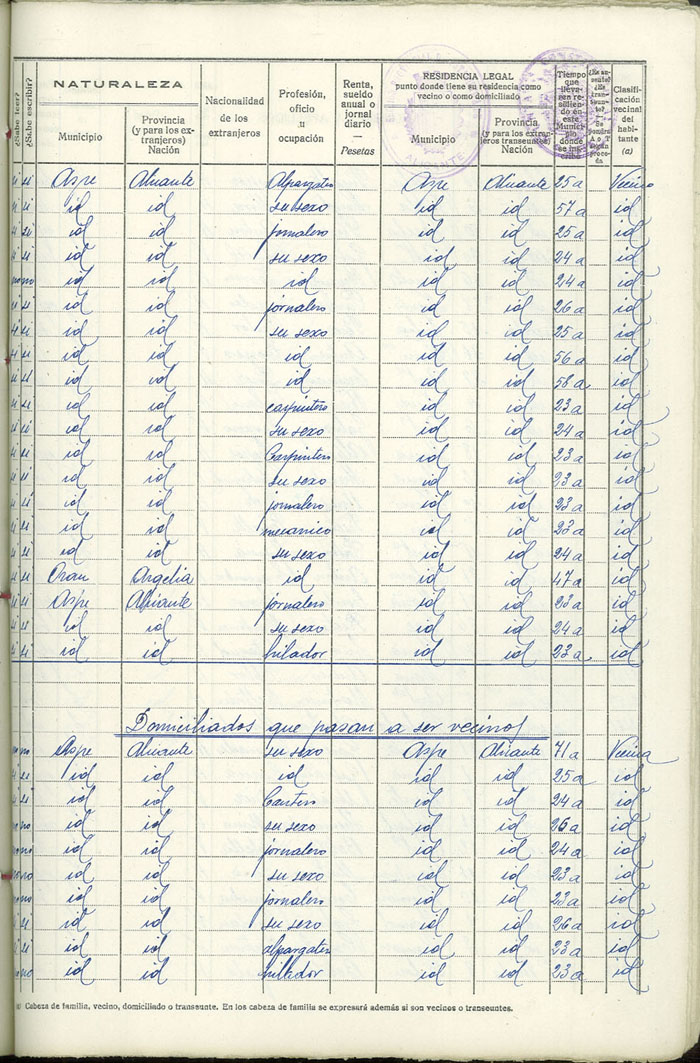 ¿Sabe leer? ¿Sabe escribir? NATURALEZA Nacionalidad de los extranjeros Profesión, oficio u ocupación Renta, sueldo anual o jornal diario — Pesetas RESIDENCIA LEGAL punto donde tiene su residencia como vecino o como domiciliado Tiempo que lleva residiendo en este Municipio donde se inscribe Clasificación vecinal del habitante (a)
Municipio Provincia (y para los extranjeros) Nación Municipio Provincia (y para los extranjeros transeuntes) Nación
si si Aspe Alicante Alpargatero Aspe Alicante 25 a Vecino
si si id id su sexo id id 57 a id
si si id id jornalero id id 25 a id
si si id id su sexo id id 24 a id
no no id id id id id 24 a id
si si id id jornalero id id 26 a id
si si id id su sexo id id 25 a id
si si id id id id id 56 a id
si si id id id id id 58 a id
si si id id carpintero id id 23 a id
si si id id su sexo id id 24 a id
si si id id Carpintero id id 23 a id
si si id id su sexo id id 23 a id
si si id id jornalero id id 23 a id
si si id id mecanico id id 23 a id
si si id id su sexo id id 24 a id
si si Oran Argelia id id id 47 a id
si si Aspe Alicante jornalero id id 23 a id
si si id id su sexo id id 24 a id
si si id id hilador id id 23 a id
Domiciliados que pasan a ser vecinos
no no Aspe Alicante su sexo Aspe Alicante 71 a Vecina
si si id id id id id 25 a id
si si id id Cantero id id 24 a id
no no id id su sexo id id 26 a id
no no id id jornalero id id 24 a id
no no id id su sexo id id 23 a id
no no id id jornalero id id 23 a id
si si id id su sexo id id 26 a id
si si id id alpargatero id id 23 a id
no no id id hilador id id 23 a id
(a) Cabeza de familia, vecino, domiciliado o transeunte. En los cabeza de familia se expresará además si son vecinos o transeuntes.